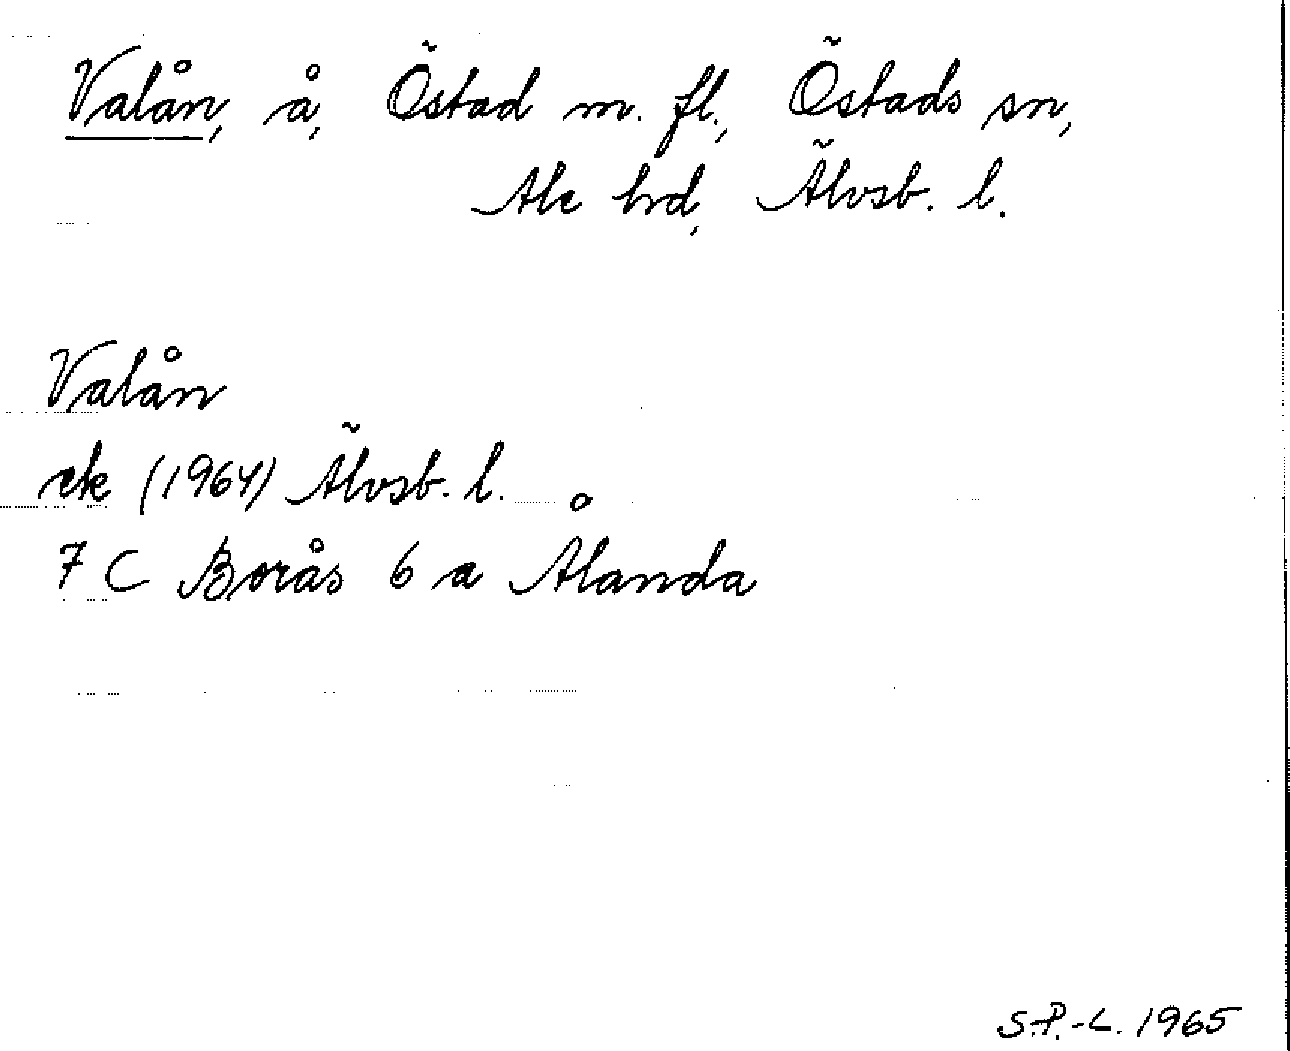 Valån, å, Östad m. fl., Östads sn,
Ale hd, Älvsb. l.
Valån
ek (1964) Älvsb. l.
7 C Borås 6 a Ålanda
S.P.-L. 1965